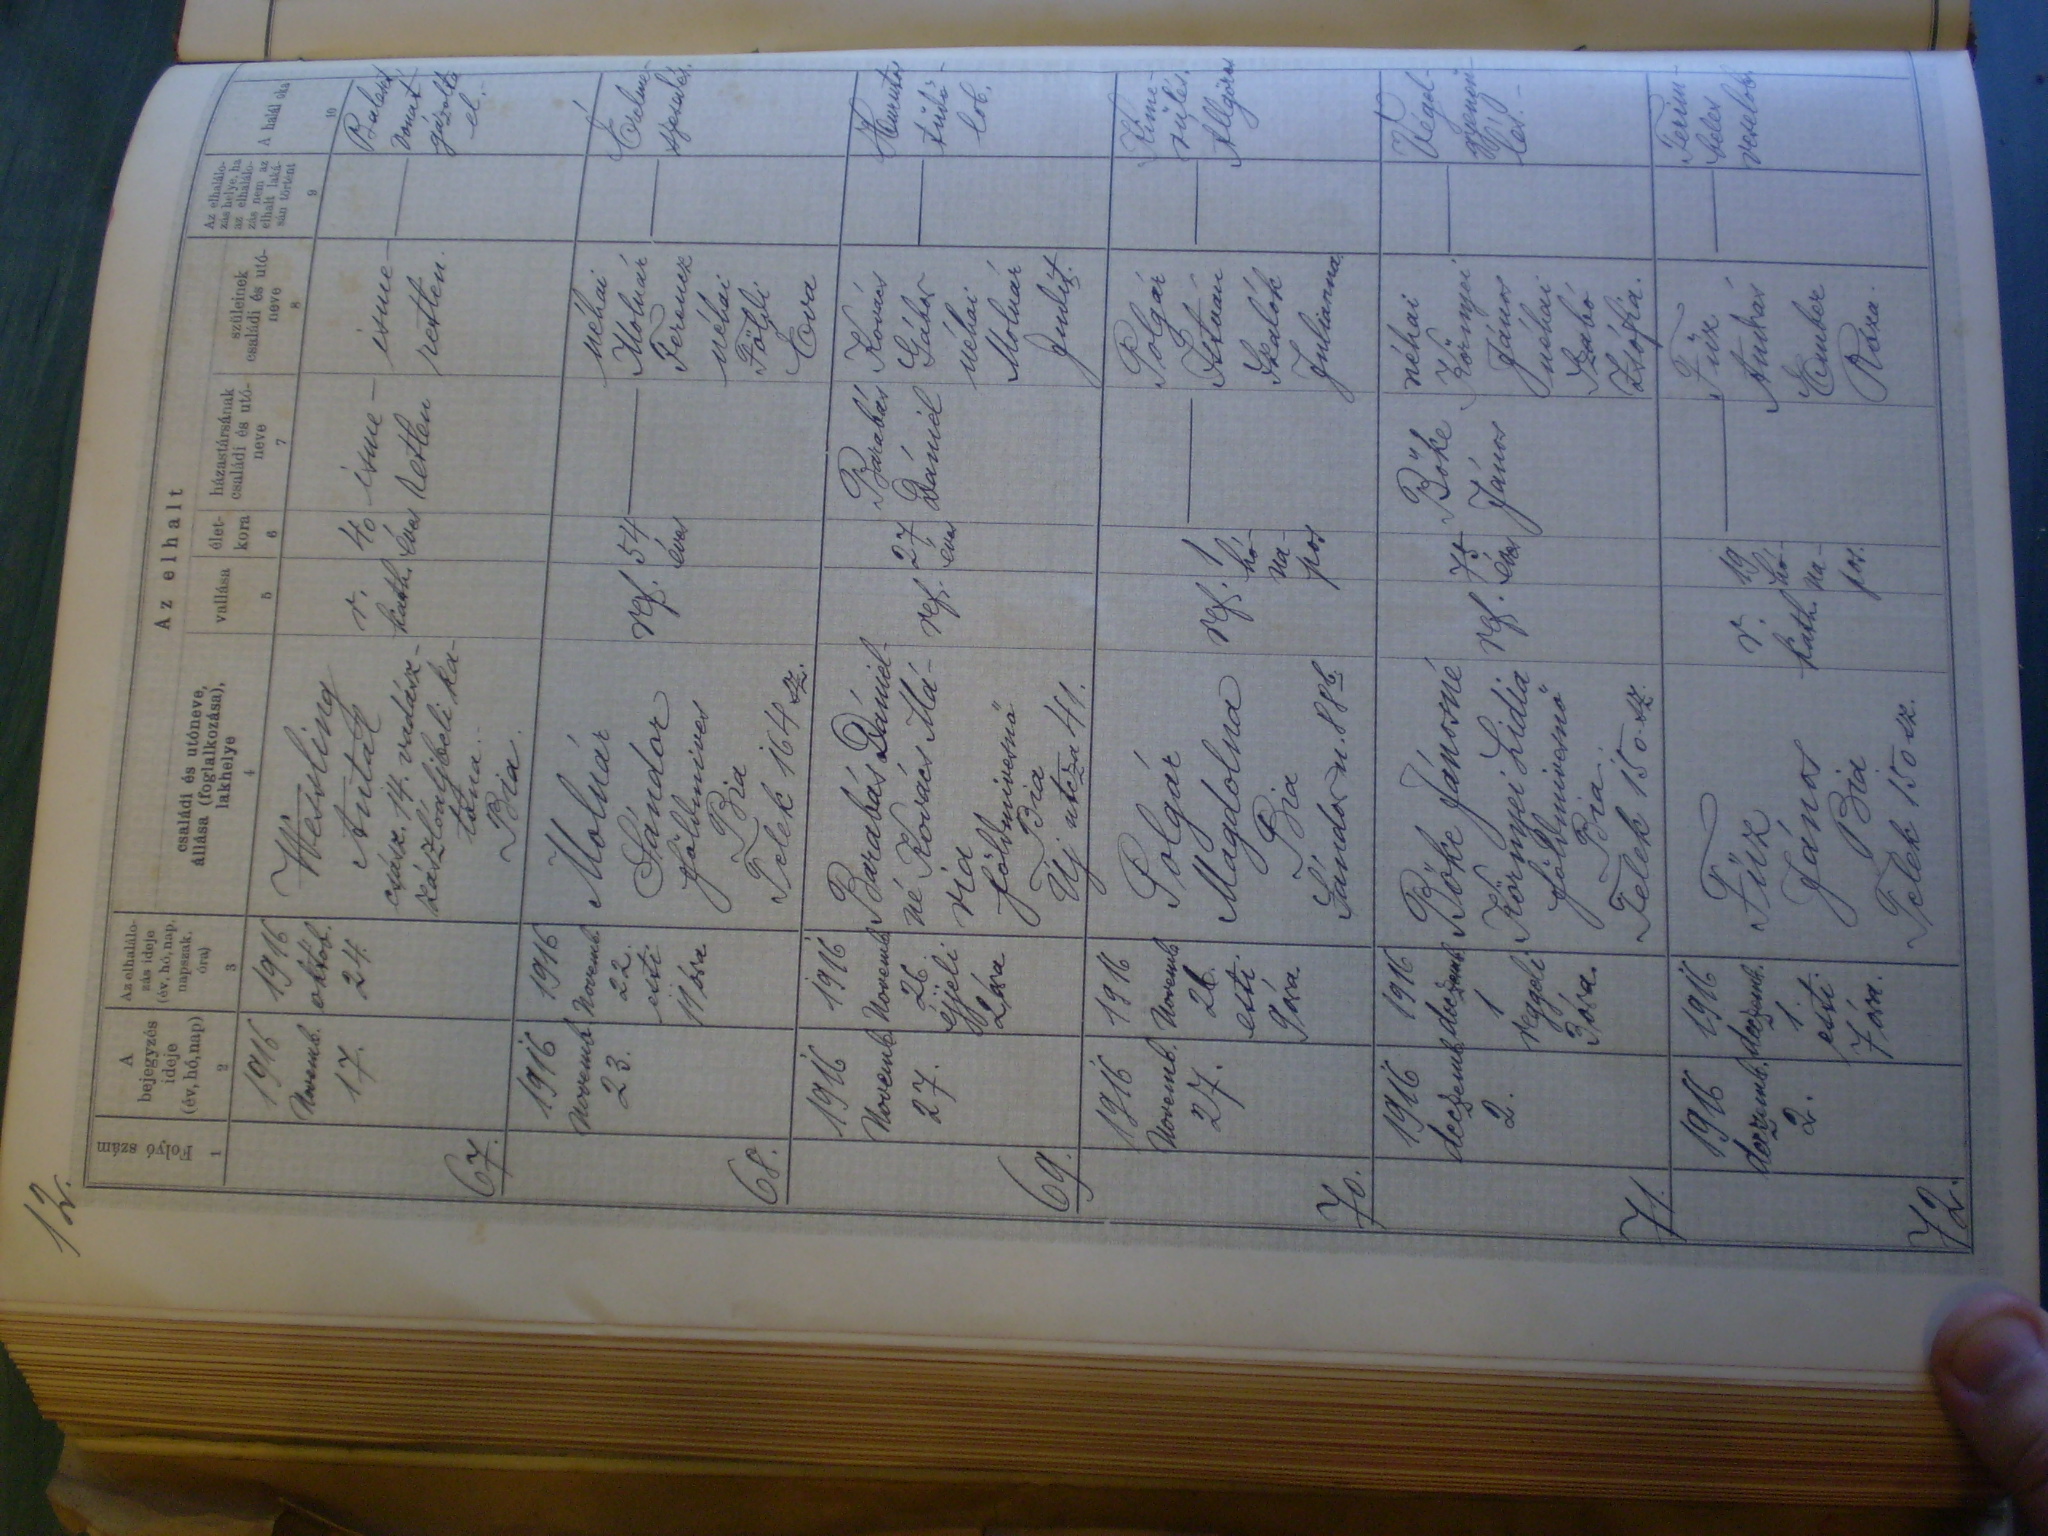 12.
Az elhalt
Folyó szám
A bejegyzés ideje (év, hó, nap)
Az elhalálozás ideje (év, hó, nap, napszak, óra)
családi és utóneve, állása (foglalkozása), lakhelye
vallása
életkora
házastársának családi és utóneve
szüleinek családi és utóneve
Az elhalálozás helye, ha az elhalálozás nem az elhalt lakásán történt
A halál oka
1
2
3
4
5
6
7
8
9
10
67.
1916
Novemb.
17.
1916
oktob.
24.
Wesling
Antal
csász. 14. vadász-
zászlóaljbeli ka-
tona.
Bia.
r.
kath.
40
éves
isme-
retlen
isme-
retlen.
vonat
gázolta
el.
68.
1916
Novemb.
23.
1916
Novemb.
22.
esti
11 óra
Molnár
Sándor
földmives
Bia
Telek 164 sz.
ref.
54
éves
néhai
Molnár
Ferenc
néhai
Földi
Éva
69.
1916
Novemb.
27.
1916
Novemb.
26.
éjjeli
2 óra
Barabás Dániel-
né Kovács Má-
ria
földmivesnő
Bia
Uj utcza 41.
ref.
27
éves
Barabás
Dániel
Kovács
Gábor
néhai
Molnár
Judit.
tüdő-
lob.
70.
1916
Novemb.
27.
1916
Novemb.
26.
esti
9 óra
Polgár
Magdolna
Bia
Sándor u. 88 b
ref.
1
hó-
na-
pos
Polgár
István
Szalók
Julianna
Kime-
rülés.
71.
1916
deczemb.
2.
1916
deczemb.
1
reggeli
3 óra.
Bőke Jánosné
Környei Lidia
földmivesnő
Bia.
Telek 150 sz.
ref.
75
éves
Bőke
János
néhai
Környei
János
néhai
Szabó
Zsófia.
Végel-
gyengü-
lés.
72.
1916
deczemb.
2.
1916
deczemb.
1.
esti
7 óra.
Füx
János
Bia
Telek 150 sz.
r.
kath.
19
hó-
na-
pos.
Füx
András
Ember
Róza.